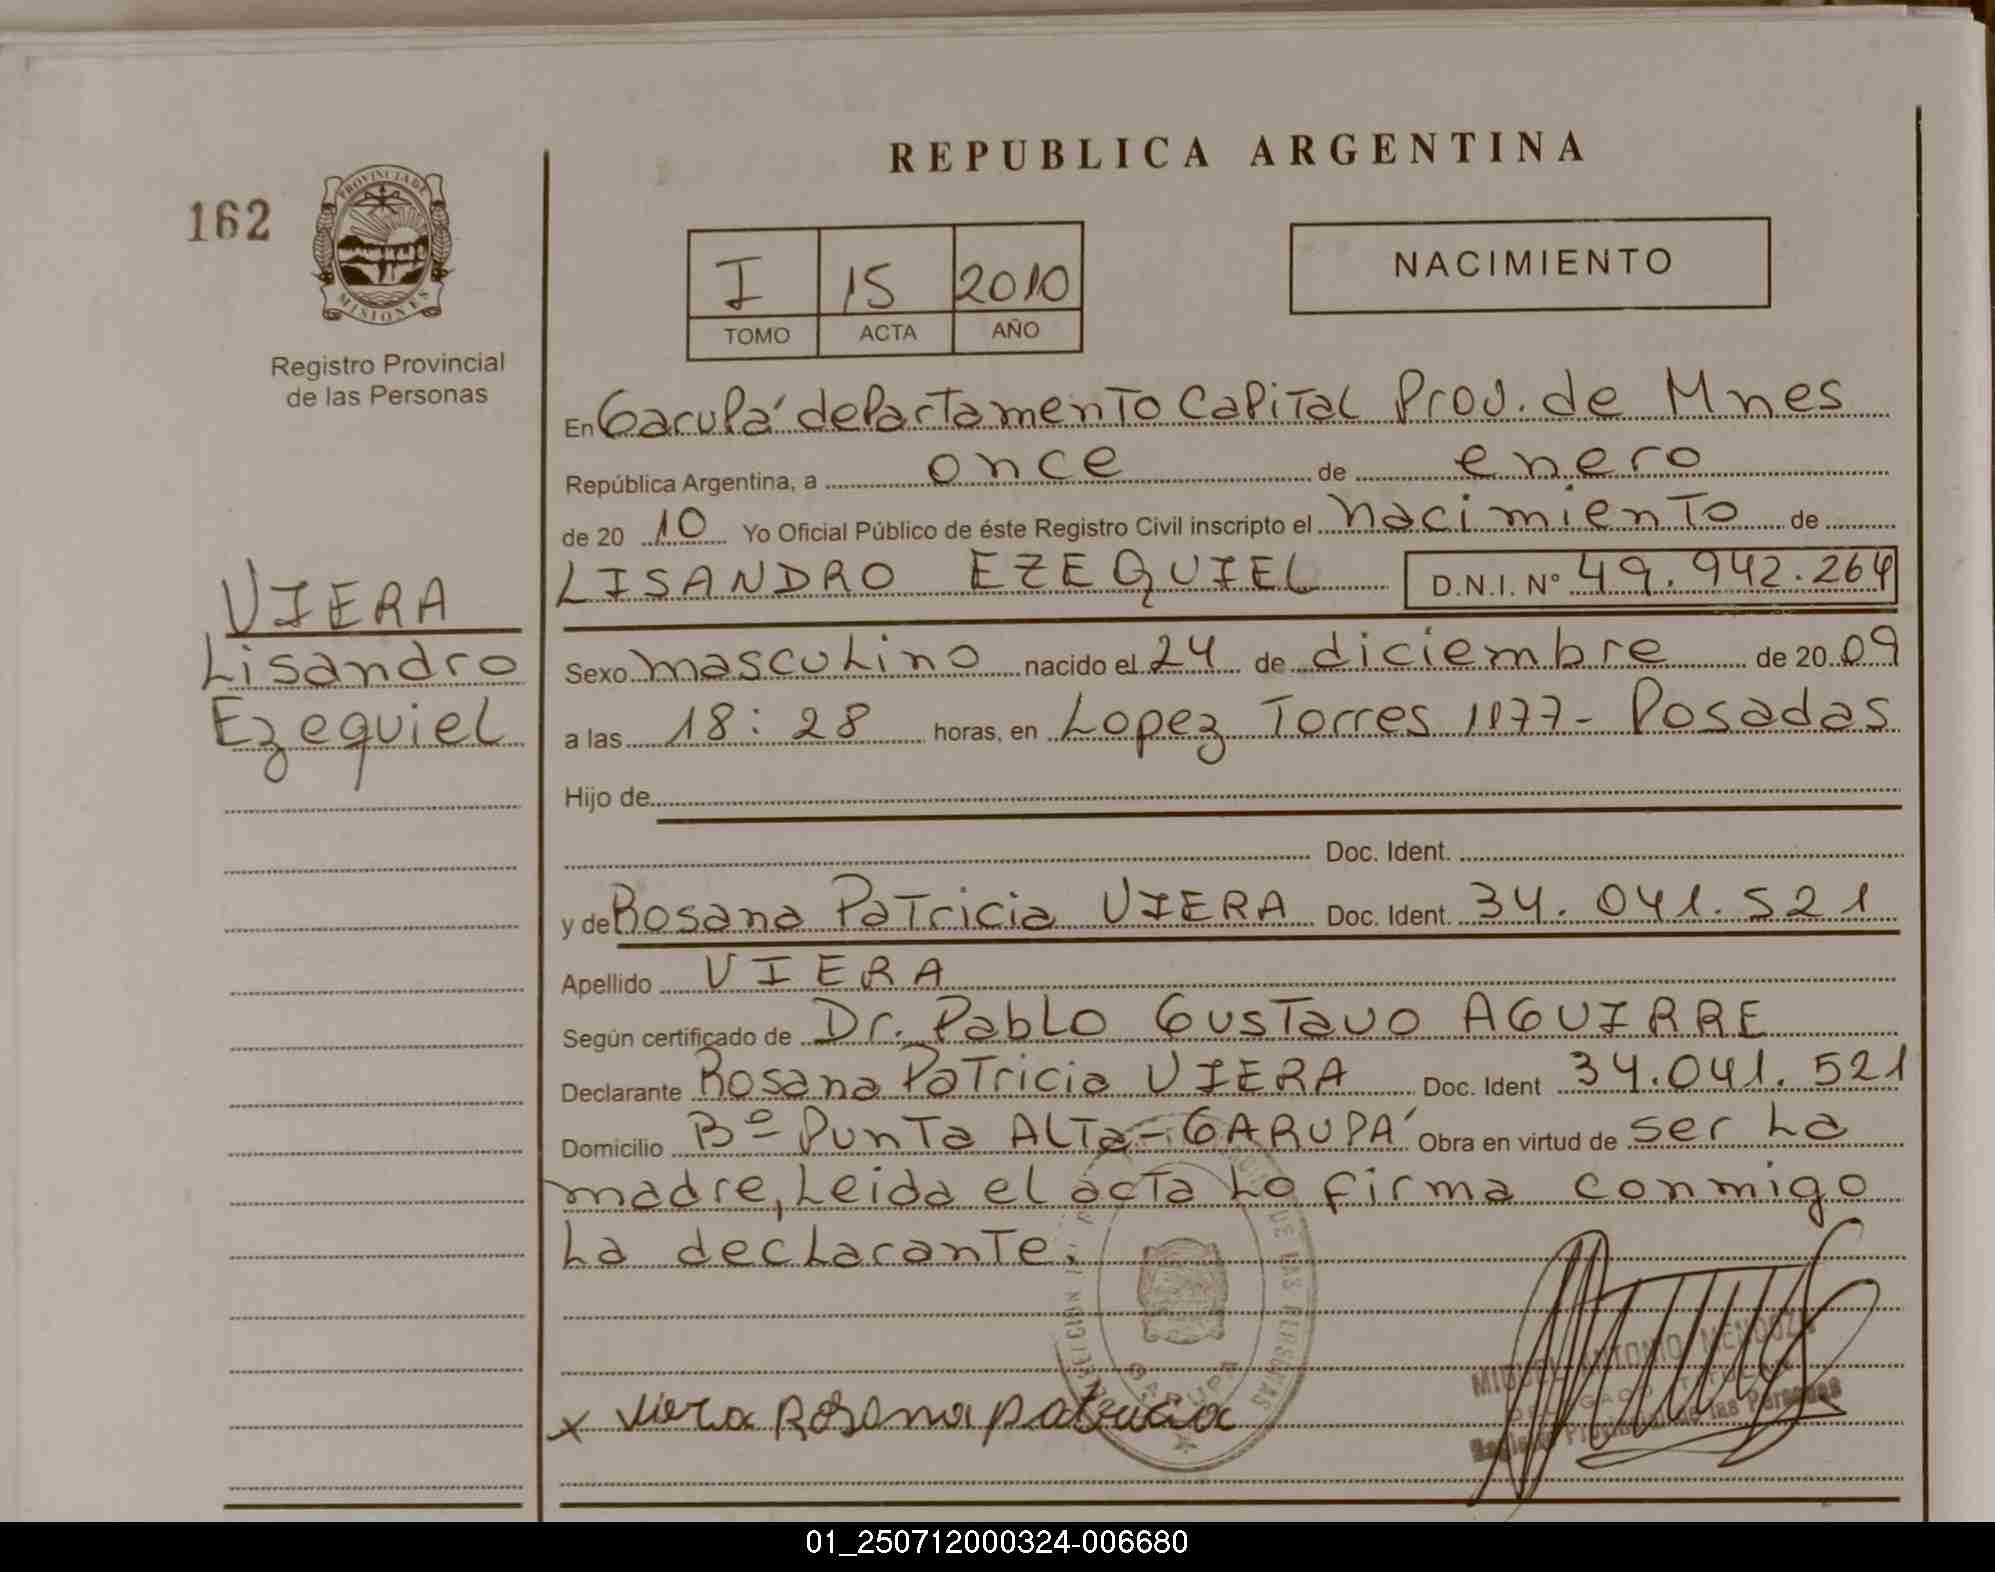 REPUBLICA ARGENTINA
162
PROVINCIA DE
MISIONES
Registro Provincial
de las Personas
I 15 2010
TOMO ACTA AÑO
NACIMIENTO
En Garupá departamento Capital Prov. de Mnes
República Argentina, a once de enero
de 20 10 Yo Oficial Público de éste Registro Civil inscripto el nacimiento de
LISANDRO EZEQUIEL D.N.I. Nº 49.942.264
VIERA
Lisandro
Ezequiel
Sexo masculino nacido el 24 de diciembre de 20 09
a las 18:28 horas, en Lopez Torres 1177- Posadas
Hijo de
Doc. Ident.
y de Rosana Patricia VIERA Doc. Ident. 34.041.521
Apellido VIERA
Según certificado de Dr. Pablo Gustavo AGUIRRE
Declarante Rosana Patricia VIERA Doc. Ident 34.041.521
Domicilio Bº Punta Alta - GARUPÁ Obra en virtud de ser la
madre, Leida el acta lo firma conmigo
la declarante.
DE LAS PERSONAS
GARUPA
MIGUEL ANTONIO MENDOZA
DELEGADO TITULAR
Registro Provincial de las Personas
x Viera Rosana patricia
01_250712000324-006680